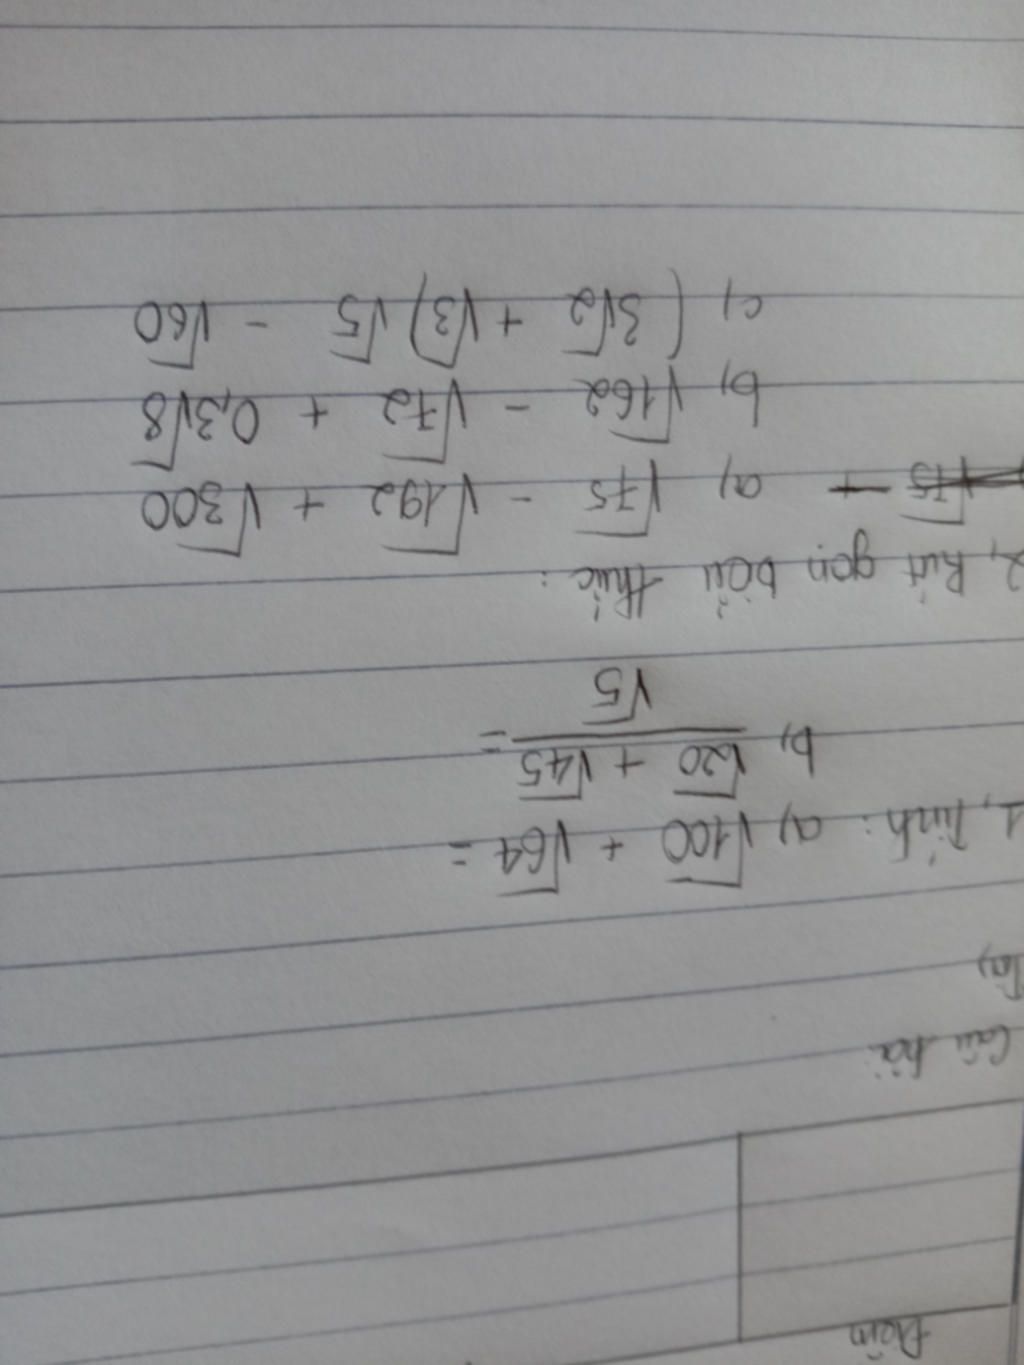 Điểm
Câu hỏi:
1, Tính: a) √100 + √64 =
b, (√20 + √45)/√5 =
2, Rút gọn biểu thức:
a) √75 - √192 + √300
b, √162 - √72 + 0,3√8
c) (3√2 + √3)√5 - √60